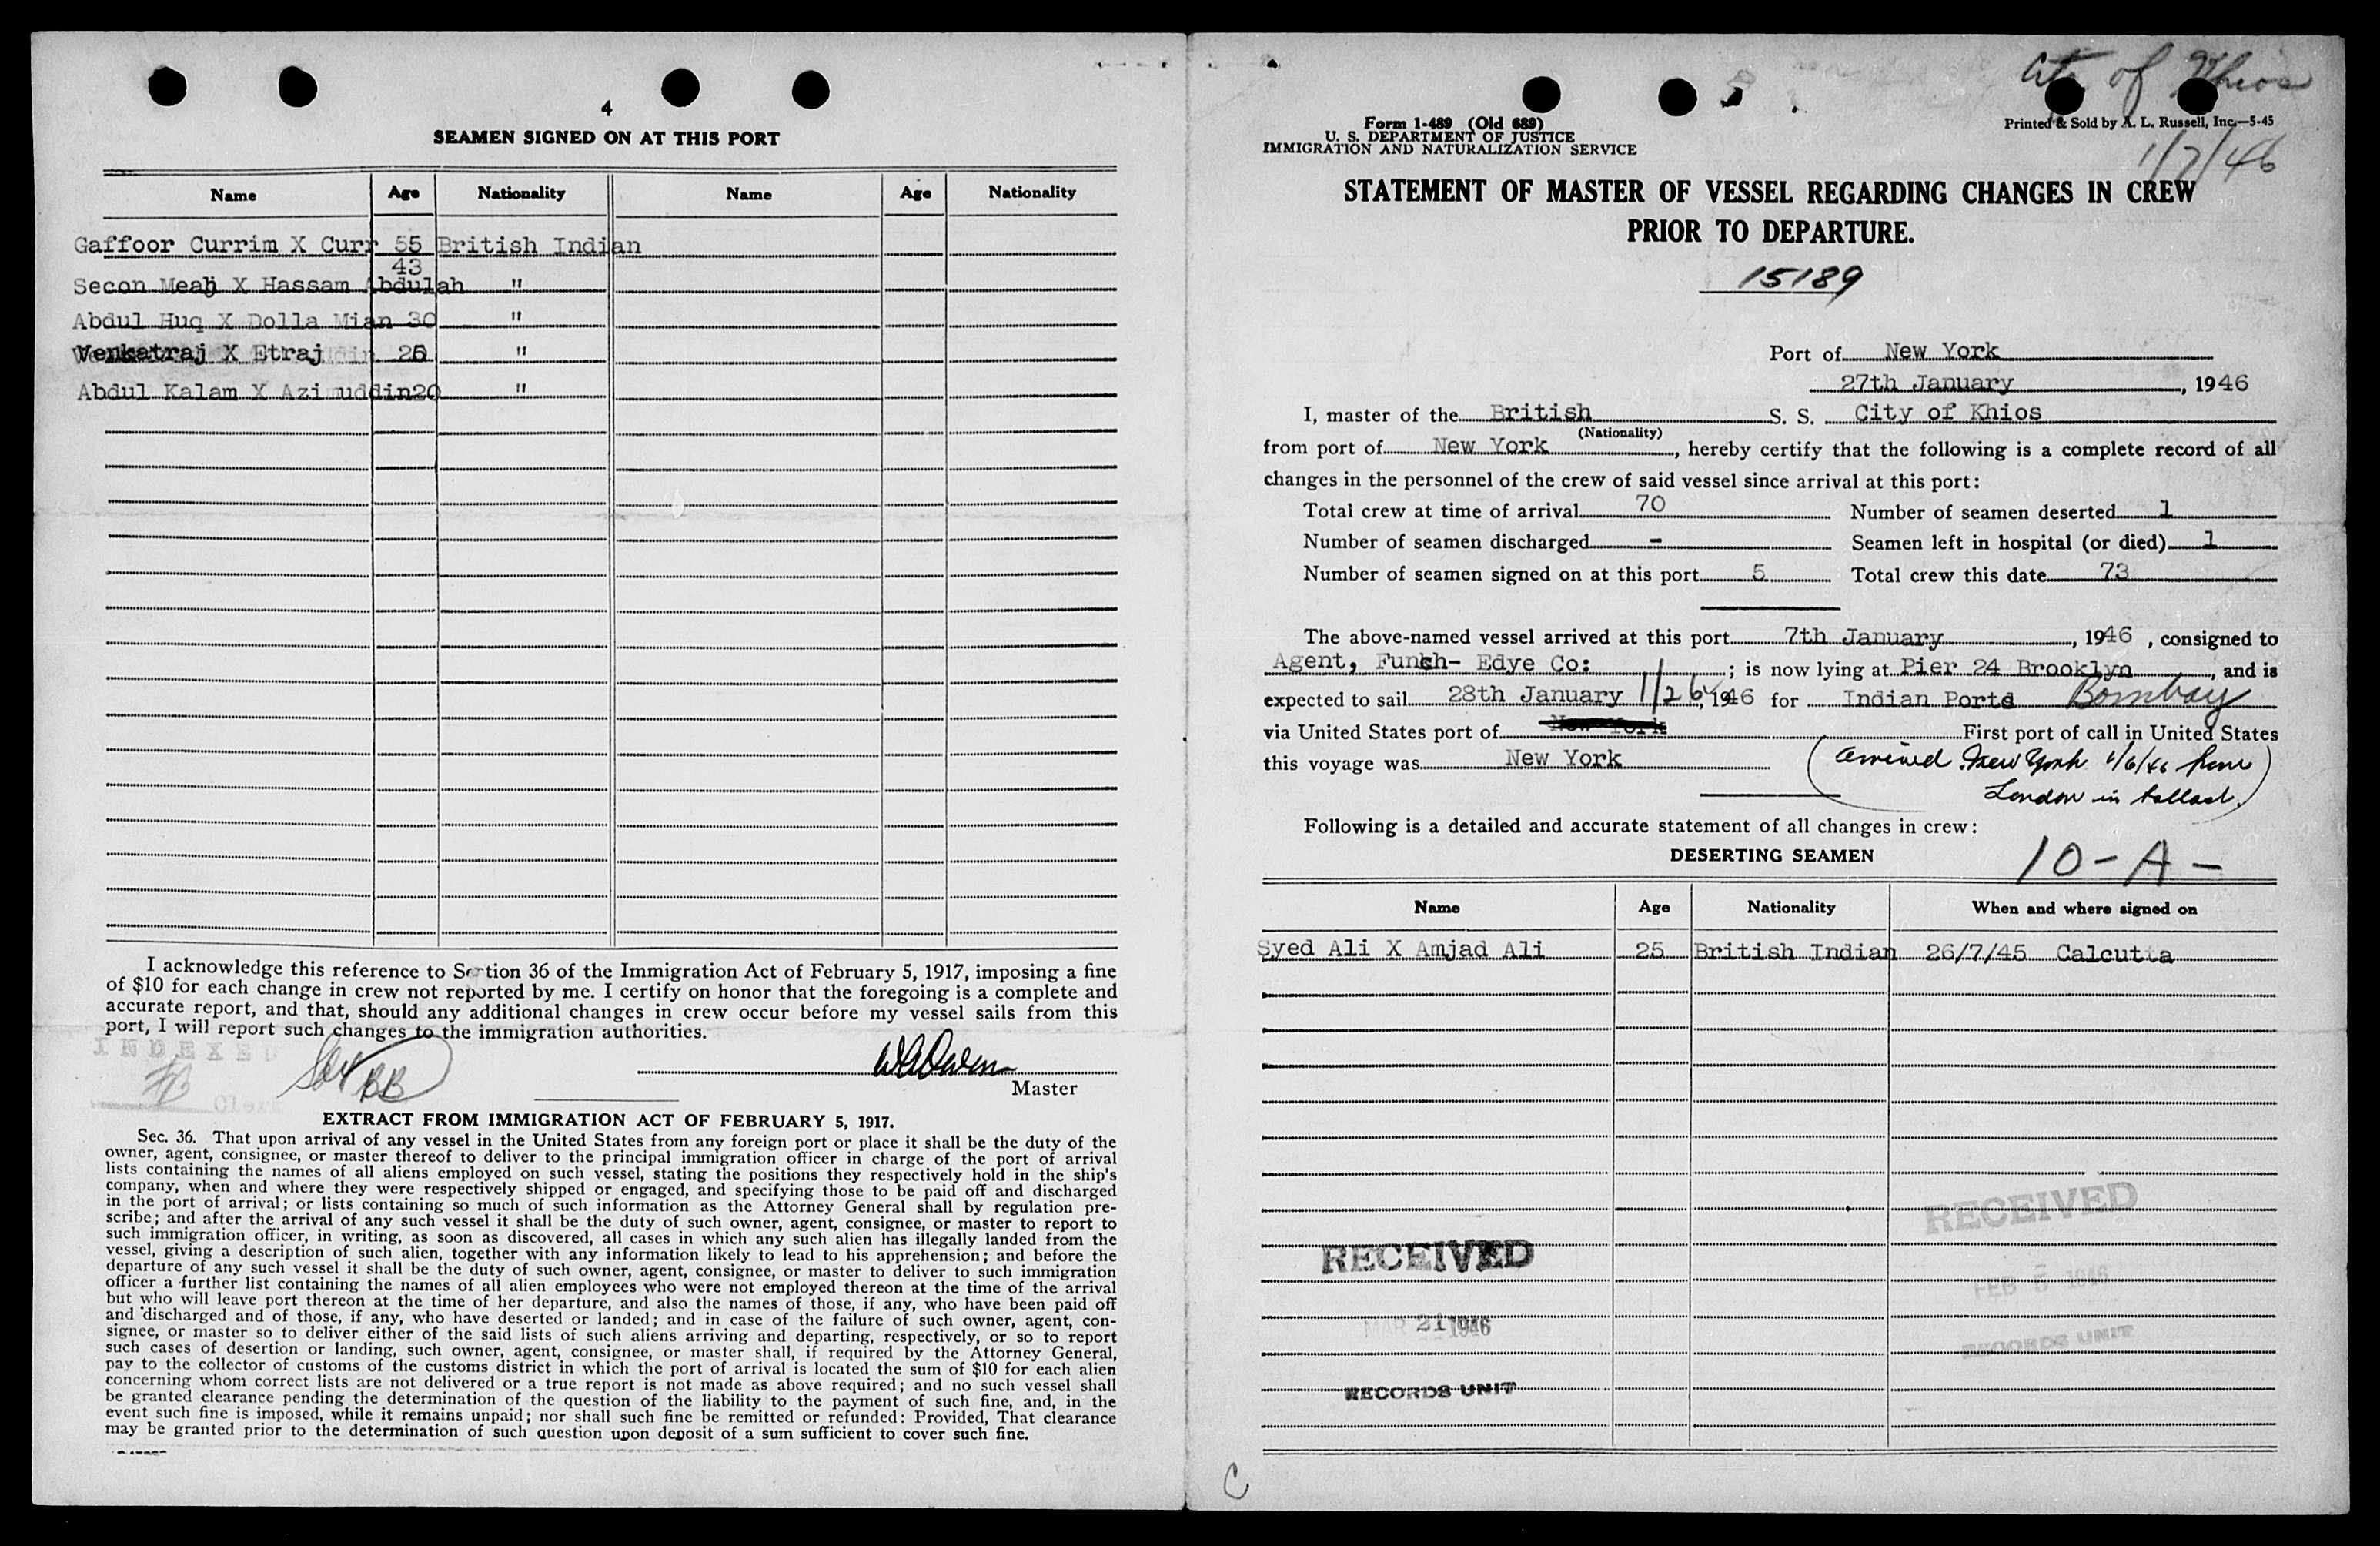 4
SEAMEN SIGNED ON AT THIS PORT
Name Age Nationality Name Age Nationality
Gaffoor Currim X Curr 55 British Indian
43
Secon Meah X Hassam Abdulah "
Abdul Huq X Dolla Mian 30 "
Venkatraj X Etraj 25 "
Abdul Kalam X Azimuddin 20 "
I acknowledge this reference to Section 36 of the Immigration Act of February 5, 1917, imposing a fine
of $10 for each change in crew not reported by me. I certify on honor that the foregoing is a complete and
accurate report, and that, should any additional changes in crew occur before my vessel sails from this
port, I will report such changes to the immigration authorities.
INDEXED
BB
Clerk
WAOwen
Master
EXTRACT FROM IMMIGRATION ACT OF FEBRUARY 5, 1917.
Sec. 36. That upon arrival of any vessel in the United States from any foreign port or place it shall be the duty of the
owner, agent, consignee, or master thereof to deliver to the principal immigration officer in charge of the port of arrival
lists containing the names of all aliens employed on such vessel, stating the positions they respectively hold in the ship's
company, when and where they were respectively shipped or engaged, and specifying those to be paid off and discharged
in the port of arrival; or lists containing so much of such information as the Attorney General shall by regulation pre-
scribe; and after the arrival of any such vessel it shall be the duty of such owner, agent, consignee, or master to report to
such immigration officer, in writing, as soon as discovered, all cases in which any such alien has illegally landed from the
vessel, giving a description of such alien, together with any information likely to lead to his apprehension; and before the
departure of any such vessel it shall be the duty of such owner, agent, consignee, or master to deliver to such immigration
officer a further list containing the names of all alien employees who were not employed thereon at the time of the arrival
but who will leave port thereon at the time of her departure, and also the names of those, if any, who have been paid off
and discharged and of those, if any, who have deserted or landed; and in case of the failure of such owner, agent, con-
signee, or master so to deliver either of the said lists of such aliens arriving and departing, respectively, or so to report
such cases of desertion or landing, such owner, agent, consignee, or master shall, if required by the Attorney General,
pay to the collector of customs of the customs district in which the port of arrival is located the sum of $10 for each alien
concerning whom correct lists are not delivered or a true report is not made as above required; and no such vessel shall
be granted clearance pending the determination of the question of the liability to the payment of such fine, and, in the
event such fine is imposed, while it remains unpaid; nor shall such fine be remitted or refunded: Provided, That clearance
may be granted prior to the determination of such question upon deposit of a sum sufficient to cover such fine.
City of Khios
Form 1-489 (Old 689)
U. S. DEPARTMENT OF JUSTICE
IMMIGRATION AND NATURALIZATION SERVICE
Printed & Sold by A. L. Russell, Inc.—5-45
1/7/46
STATEMENT OF MASTER OF VESSEL REGARDING CHANGES IN CREW
PRIOR TO DEPARTURE.
15189
Port of New York
27th January, 1946
I, master of the British S. S. City of Khios
(Nationality)
from port of New York, hereby certify that the following is a complete record of all
changes in the personnel of the crew of said vessel since arrival at this port:
Total crew at time of arrival 70 Number of seamen deserted 1
Number of seamen discharged - Seamen left in hospital (or died) 1
Number of seamen signed on at this port 5 Total crew this date 73
The above-named vessel arrived at this port 7th January, 1946, consigned to
Agent, Funch- Edye Co: ; is now lying at Pier 24 Brooklyn, and is
expected to sail 28th January 1/26, 1946 for Indian Ports Bombay
via United States port of New York First port of call in United States
this voyage was New York (arrived New York 1/6/46 from
London in ballast.)
Following is a detailed and accurate statement of all changes in crew:
DESERTING SEAMEN 10-A-
Name Age Nationality When and where signed on
Syed Ali X Amjad Ali 25 British Indian 26/7/45 Calcutta
RECEIVED
FEB 5 1946
RECORDS UNIT
RECEIVED
MAR 21 1946
RECORDS UNIT
C